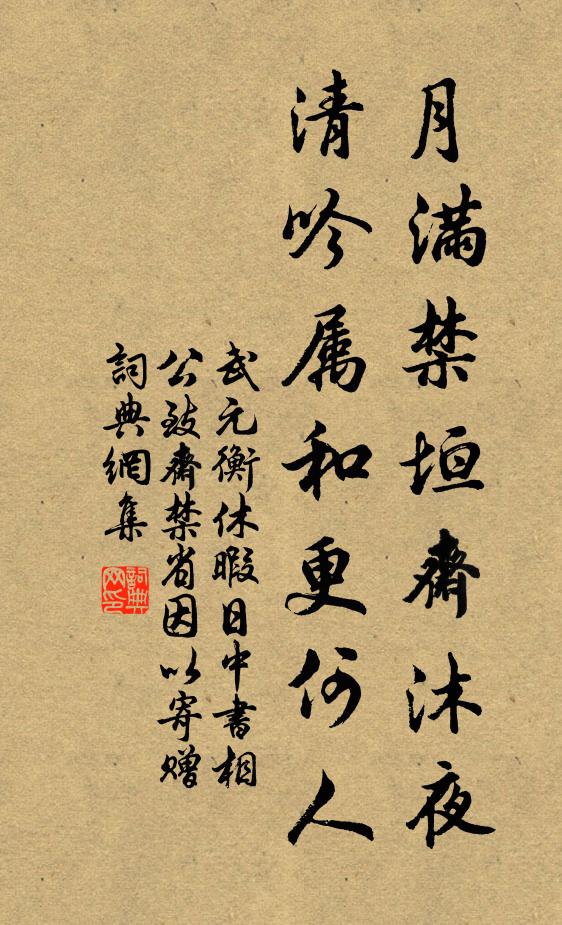 月滿禁垣齋沐夜
清吟属和更何人
武元衡休暇日中書相
公致齋禁省因以寄贈
詞典網集
詞典
网印